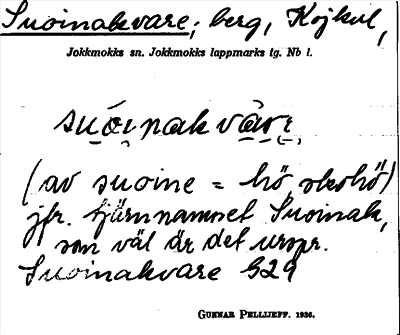 Suoinakvare, berg, Kojkul,
Jokkmokks sn. Jokkmokks lappmarks tg. Nb l.
suoi̯nak vāre̯
(av suoine = hö, skohö)
jfr. tjärnnamnet Suoinak,
som väl är det urspr.
Suoinakvare G29
GUNNAR PELLIJEFF. 1936.